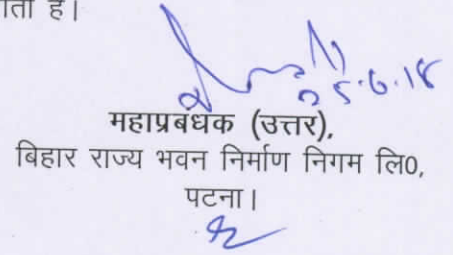 ता है।
25.6.18
महाप्रबंधक (उत्तर),
बिहार राज्य भवन निर्माण निगम लि0,
पटना।